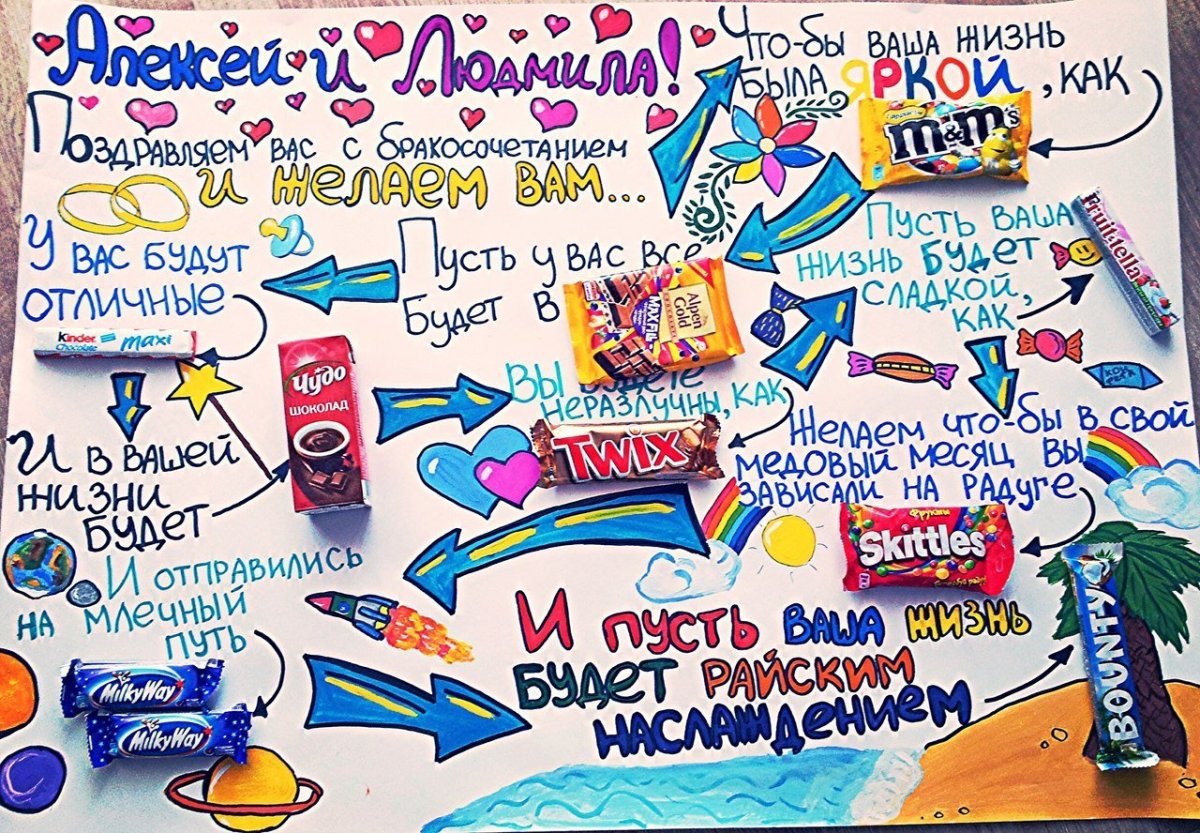 Алексей и Людмила!
Поздравляем вас с бракосочетанием
и желаем вам...
Что-бы ваша жизнь
была яркой, как
m&m's
Пусть у вас все
будет в
Alpen
Gold
MAXFUN
У вас будут
отличные
Kinder
Chocolate maxi
И в вашей
жизни
будет
Чудо
ШОКОЛАД
Вы будете
неразлучны, как
TWIX
Пусть ваша
жизнь будет
сладкой,
как
Fruit-tella
Желаем что-бы в свой
медовый месяц вы
зависали на радуге
Фрукты
Skittles
И отправились
на млечный
путь
MilkyWay
MilkyWay
И пусть ваша жизнь
будет райским
наслаждением
BOUNTY